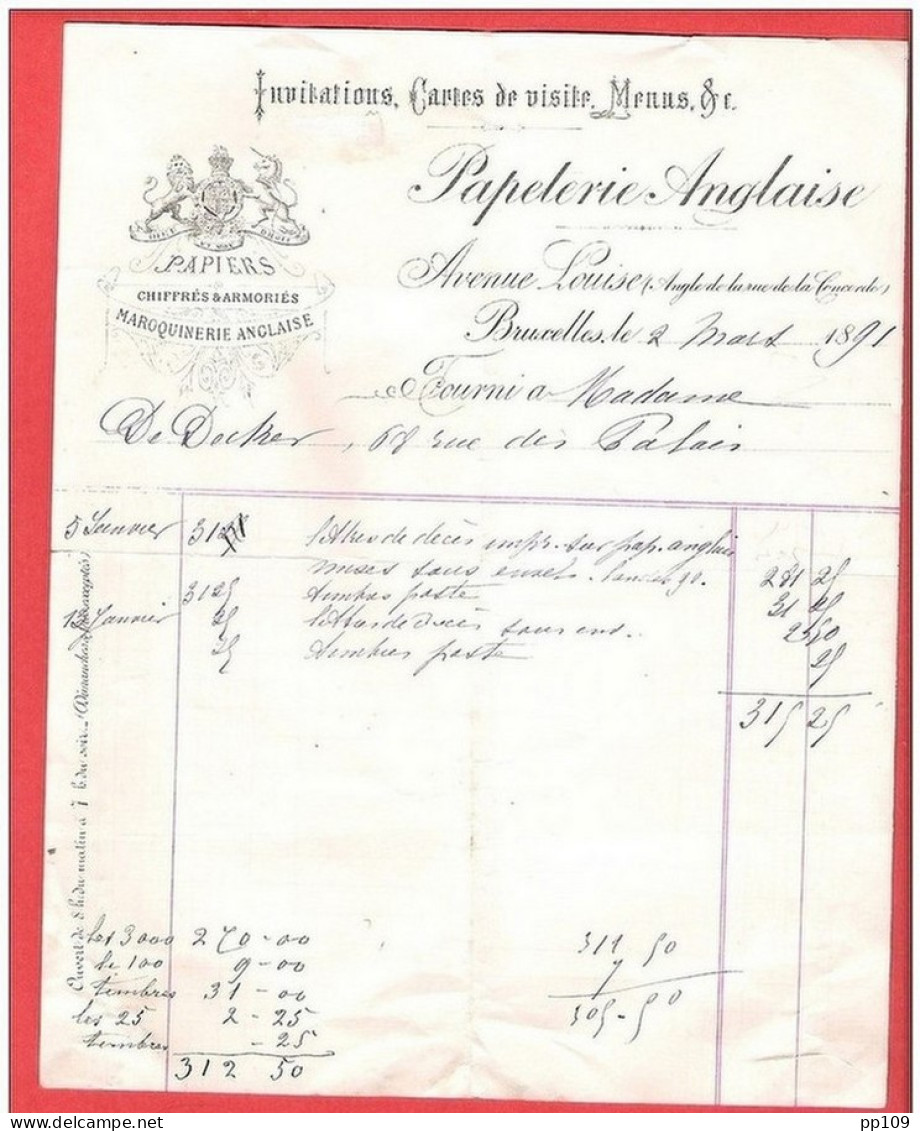 Invitations, Cartes de visite, Menus, &c.
Papeterie Anglaise
PAPIERS
CHIFFRÉS & ARMORIÉS
MAROQUINERIE ANGLAISE
Avenue Louise (Angle de la rue de la Concorde)
Bruxelles, le 2 Mars 1891
Fourni a Madame
De Decker, 68 rue des Palais
5 Janvier 3125 lettres de décès impr. sur pap. anglais
mises sous envel. 90. 281 25
3125 timbres poste 31 25
15 Janvier 25 lettres de décès sous env. 2 50
25 timbres poste 25
315 25
Ouvert de 8 h. du matin à 7 h. du soir. (Dimanches & fêtes exceptés)
les 3000 270-00
le 100 9-00
timbres 31-00
les 25 2-25
timbres -25
312 50
311 50
305-50
pp109